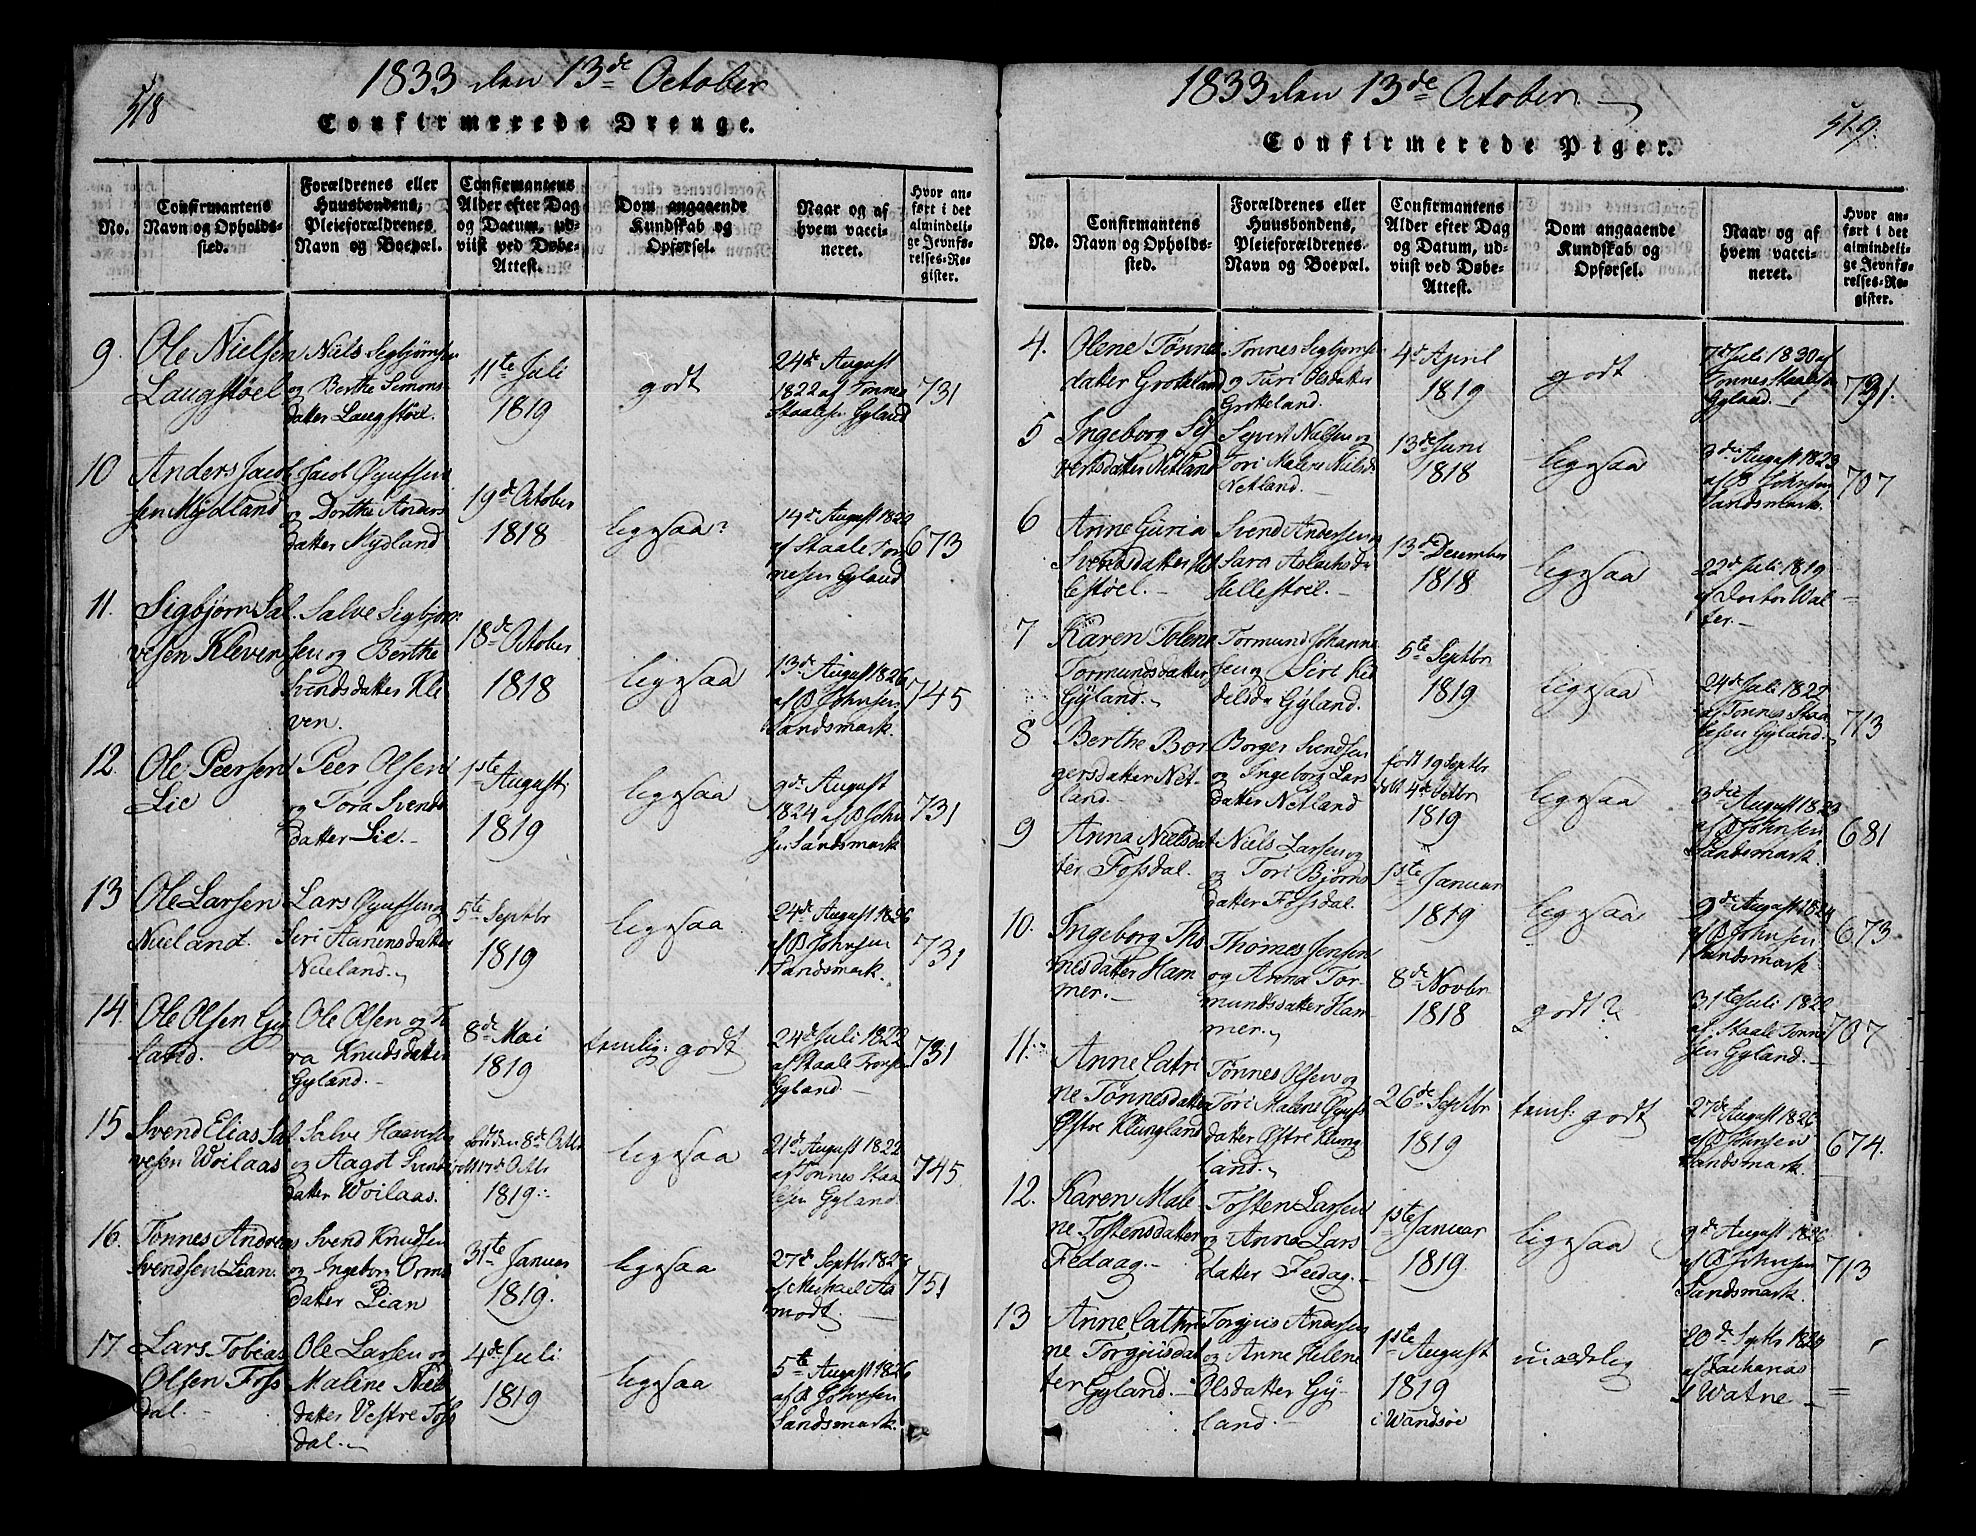 518
1833 den 13de October
Confirmerede Drenge.
No.
Confirmantens
Navn og Opholds-
sted.
Forældrenes eller
Huusbondens,
Pleieforældrenes
Navn og Boepæl.
Confirmantens
Alder efter Dag
og Datum, ud-
viist ved Døbe-
Attest.
Dom angaaende
Kundskab og
Opførsel.
Naar og af
hvem vacci-
neret.
Hvor an-
ført i det
almindeli-
ge Jevnfø-
relses-Re-
gister.
9.
Ole Nielsen
Laugstøel
Niels Sigbjørnsen
og Berthe Simons-
datter Laugstøel.
11te Juli
1819
godt
24de August
1822 af Tønnes
Staalesen Gyland
731
10
Anders Jacob
sen Mydland
Jacob Gjuffsen
og Dorthe Anders
datter Mydland
19de October
1818
ligesaa?
14de August 1820
af Staale Tøn
nesen Gyland
673
11.
Sigbjørn Sal
vesen Kleven
Salve Sigbjørn
sen og Berthe
Svendsdatter Kle
ven.
18de October
1818
ligesaa
13de August 1826
af B Johnsen
Sandsmark.
745
12.
Ole Peersen
Lie
Peer Olsen
og Tora Svends
datter Lie.
1ste August
1819
ligesaa
9de August
1824 af B John
sen Sandsmark
731
13
Ole Larsen
Nueland.
Lars Gjuffsen og
Siri Aanensdatter
Nueland.
5te Septbr
1819
ligesaa
24de August 1826
af B Johnsen
Sandsmark.
731
14.
Ole Olsen Gy
land.
Ole Olsen og To
ra Knudsdatter
Gyland.
8de Mai
1819
temlig: godt
24de Juli 1822
af Staale
Gyland
731
15
Svend Elias Sal
vesen Woilaas
Salve Haavers
og Aagot Svends
datter Woilaas.
født den 8de Octbr
døbt 17de Octbr
1819
ligesaa
21de August 1822
af Tønnes Staa
lesen Gyland
745
16.
Tønnes Andreas
Svendsen Lian.
Svend Knudsen
og Ingeborg Orms
datter Lian
31te Januar
1819.
ligesaa
27de Septbr 182
af Michael Aa
modt.
751
17
Lars Tobias
Olsen Foss
dal.
Ole Larsen og
Maline Niels
datter Vestre Foss
dal.
4de Juli
1819
ligesaa
5te August 1826
af B Johnsen
Sandsmark.
1833 den 13de October.
519.
Confirmerede Piger.
No.
Confirmantens
Navn og Opholds-
sted.
Forældrenes eller
Huusbondens,
Pleieforældrenes
Navn og Boepæl.
Confirmantens
Alder efter Dag
og Datum, ud-
viist ved Døbe-
Attest.
Dom angaaende
Kundskab og
Opførsel.
Naar og af
hvem vacci-
neret.
Hvor an-
ført i det
almindeli-
ge Jevnfø-
relses-Re-
gister.
4.
Olene Tønnes
datter Grotteland
Tønnes Sigbjørnsen
og Turi Olsdatter
Grotteland.
4de April
1819
godt
7de Juli 1830 af
Tønnes Staalesen
Gyland.
731.
5
Ingeborg Si
vertsdatter Netland
Sivert Nielsen og
Tori Malene Nielsd
Netland.
13de Juni
1818
ligesaa
9de August 1823
af B Johnsen
Sandsmark.
707
6
Anne Guria
Svendsdatter Hel
lestøel.
Svend Andersen og
Sara Aslachsda
Hellestøel.
13de December
1818
ligesaa
22de Juli 1819
af Doctor Wal
ter.
=
7
Karen Tolena
Tormundsdatter
Gyland.
Tormund Johanne
sen og Siri Ki
delsda Gyland.
5te Septbr
1819
ligesaa
24de Juli 1822
af Tønnes Staa
lesen Gyland.
713
8
Berthe Bor
gersdatter Net-
land.
Borger Svendsen
og Ingeborg Lars
datter Netland
født 19 Septbr
døbt 4de Octbr
1819
ligesaa
13de August 1823
af B Johnsen
Sandsmark.
681
9
Anna Nielsdat
ter Fossdal.
Niels Larsen og
og Tori Bjørns
datter Fossdal.
1ste Januar
1819
ligesaa
9de August 1824
af B Johnsen
Sandsmark
673
10.
Ingeborg Tho
mesdatter Ham
mer.
Thomes Jensen
og Anna Tor-
mundsdatter Ham
mer.
8de Novbr
1818
godt?
31te Juli 1820
af Staale Tønne
sen Gyland.
707
11.
Anne Catri
ne Tønnesdatter
Østre Klungland
Tønnes Olsen og
Tori Malene Gjufs
datter Østre Klung
land.
26de Septbr
1819
teml: godt
27de August 1826
af B Johnsen
Sandsmark.
674.
12.
Karen Male
ne Tostensdatter
Fedaag.
Tosten Larsen
og Anna Lars
datter Fedag.
1ste Januar
1819
ligesaa
9de August 1826
af B Johnsen
Sandsmark.
713
13
Anne Cathri
ne Torgjusdat
ter Gyland.
Torgjus Andersen
og Anne Helene
Olsdatter Gy-
land.
1ste August
1819
i Wandsøe
maadelig
20de Septbr 1820
af Zacharias
Watne
=